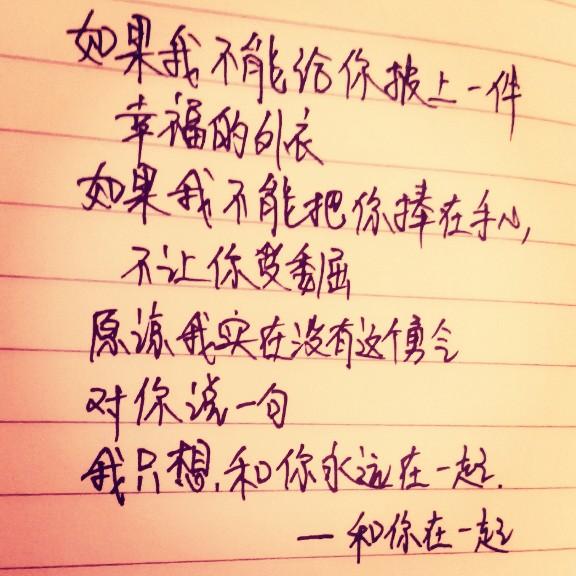 如果我不能给你披上一件
幸福的外衣
如果我不能把你捧在手心,
不让你受委屈
原谅我实在没有这个勇气
对你说一句
我只想,和你永远在一起.
— 和你在一起